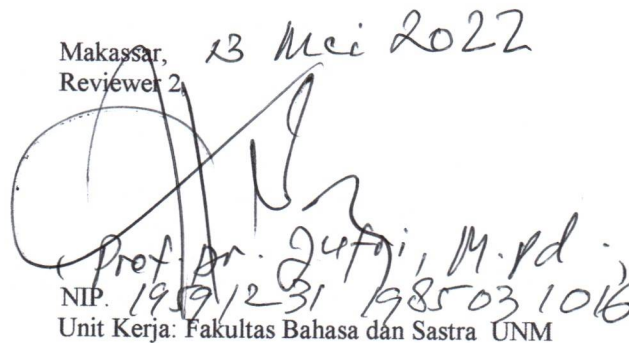 Makassar, 23 Mei 2022
Reviewer 2,
(Prof. Dr. Jufri, M.Pd.)
NIP. 19591231 198503 1016
Unit Kerja: Fakultas Bahasa dan Sastra UNM